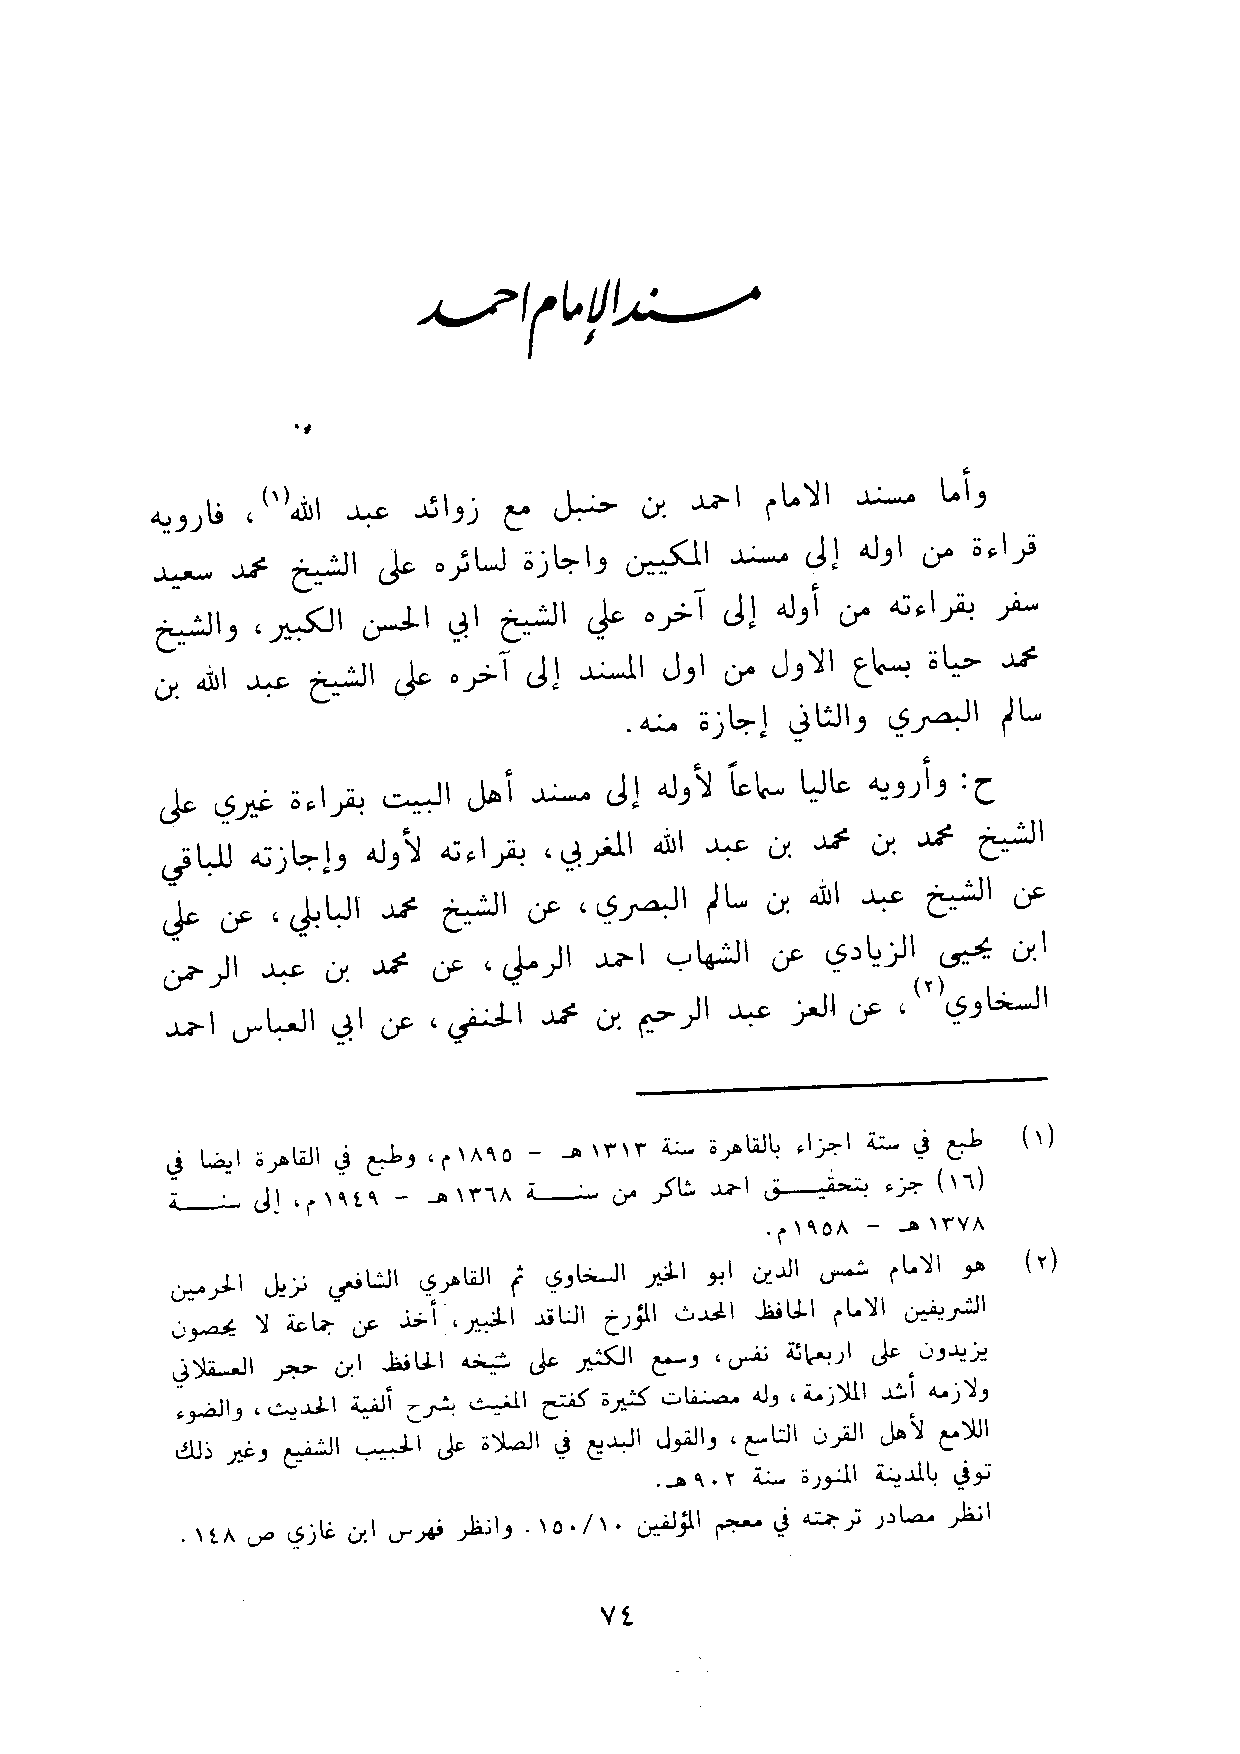 مسند الإمام احمد
وأما مسند الامام احمد بن حنبل مع زوائد عبد الله(١)، فارويه
قراءة من اوله إلى مسند المكيين واجازة لسائره على الشيخ محمد سعيد
سفر بقراءته من أوله إلى آخره علي الشيخ ابي الحسن الكبير، والشيخ
محمد حياة بسماع الاول من اول المسند إلى آخره على الشيخ عبد الله بن
سالم البصري والثاني إجازة منه.
ح: وأرويه عاليا سماعاً لأوله إلى مسند أهل البيت بقراءة غيري على
الشيخ محمد بن محمد بن عبد الله المغربي، بقراءته لأوله وإجازته للباقي
عن الشيخ عبد الله بن سالم البصري، عن الشيخ محمد البابلي، عن علي
ابن يحيى الزيادي عن الشهاب احمد الرملي، عن محمد بن عبد الرحمن
السخاوي(٢)، عن العز عبد الرحيم بن محمد الحنفي، عن ابي العباس احمد
(١) طبع في ستة اجزاء بالقاهرة سنة ١٣١٣ هـ - ١٨٩٥م، وطبع في القاهرة ايضا في
(١٦) جزء بتحقيق احمد شاكر من سنة ١٣٦٨ هـ - ١٩٤٩م، إلى سنة
١٣٧٨ هـ - ١٩٥٨م.
(٢) هو الامام شمس الدين ابو الخير السخاوي ثم القاهري الشافعي نزيل الحرمين
الشريفين الامام الحافظ المحدث المؤرخ الناقد الخبير، أخذ عن جماعة لا يحصون
يزيدون على اربعمائة نفس، وسمع الكثير على شيخه الحافظ ابن حجر العسقلاني
ولازمه أشد الملازمة، وله مصنفات كثيرة كفتح المغيث بشرح ألفية الحديث، والضوء
اللامع لأهل القرن التاسع، والقول البديع في الصلاة على الحبيب الشفيع وغير ذلك
توفي بالمدينة المنورة سنة ٩٠٢هـ.
انظر مصادر ترجمته في معجم المؤلفين ١٥٠/١٠. وانظر فهرس ابن غازي ص ١٤٨.
٧٤